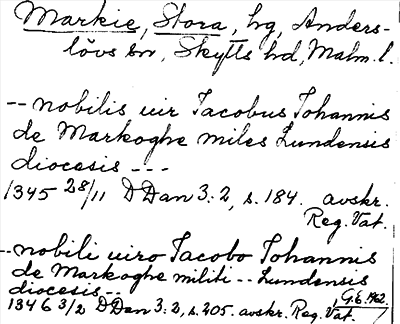 Markie, Stora, hg, Anders-
lövs sn, Skytts hd, Malm. l.
-- nobilis uir Jacobus Johannis
de Markoghe miles Lundensis
diocesis ---
1345 28/11 DDan 3:2, s. 184. avskr.
Reg. Vat.
-- nobili uiro Jacobo Johannis
de Markoghe militi -- Lundensis
diocesis -- G.E. 1962.
1346 3/2 DDan 3:2, s. 205. avskr. Reg. Vat.